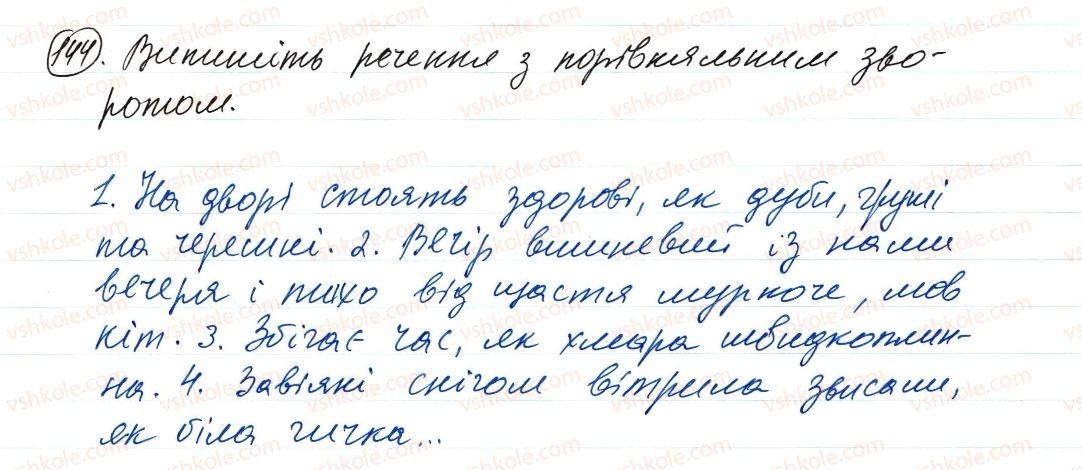 144. Випишіть речення з порівняльним зво-
ротом.
1. На дворі стоять здорові, як дуби, груші
та черешні. 2. Вечір вишневий із нами
вечеря і тихо від щастя муркоче, мов
кіт. 3. Збігає час, як хмара швидкоплин-
на. 4. Завіяні снігом вітрила звисали,
як біла гичка...